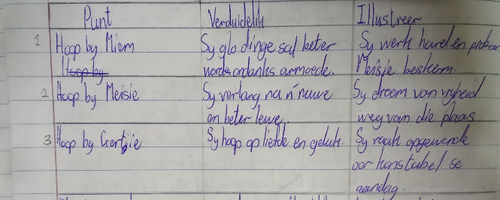 Punt Verduidelik Illustreer
1 Hoop by Miem Sy glo dinge sal beter Sy werk hard en probeer
Hoop by word ondanks armoede. Meisie beskerm
2 Hoop by Meisie Sy verlang na 'n nuwe Sy droom van vryheid
en beter lewe weg van die plaas
3 Hoop by Gertjie Sy hoop op liefde en geluk. Sy raak opgewonde
oor konstabel se
aandag.